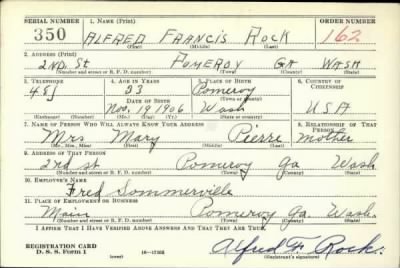 SERIAL NUMBER 1. NAME (Print) ORDER NUMBER
350 ALFRED FRANCIS ROCK 162
(First) (Middle) (Last)
2. ADDRESS (Print)
2nd St POMEROY GA WASH
(Number and street or R. F. D. number) (Town) (County) (State)
3. TELEPHONE 4. AGE IN YEARS 5. PLACE OF BIRTH 6. COUNTRY OF CITIZENSHIP
33 Pomeroy
DATE OF BIRTH (Town or county)
Nov. 19 1906 Wash USA
(Exchange) (Number) (Mo.) (Day) (Yr.) (State or country)
7. NAME OF PERSON WHO WILL ALWAYS KNOW YOUR ADDRESS 8. RELATIONSHIP OF THAT PERSON
Mrs Mary Pierre Mother
(Mr., Mrs., Miss) (First) (Middle) (Last)
9. ADDRESS OF THAT PERSON
2nd St Pomeroy Ga Wash.
(Number and street or R. F. D. number) (Town) (County) (State)
10. EMPLOYER'S NAME
Fred Sommerville
11. PLACE OF EMPLOYMENT OR BUSINESS
Main Pomeroy Ga. Wash.
(Number and street or R. F. D. number) (Town) (County) (State)
I AFFIRM THAT I HAVE VERIFIED ABOVE ANSWERS AND THAT THEY ARE TRUE.
REGISTRATION CARD
D. S. S. Form 1 (over) Alfred F. Rock.
(Registrant's signature)